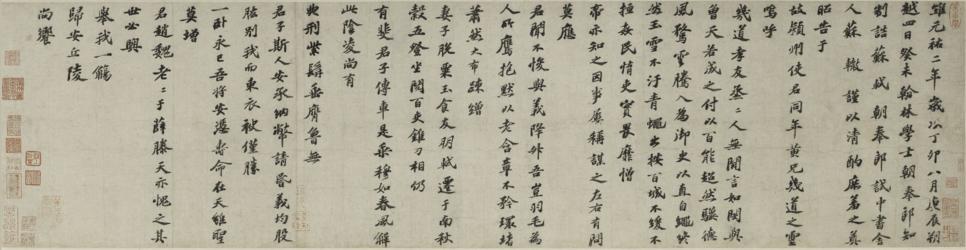 維元祐二年歲次丁卯八月庚辰朔
越四日癸未翰林學士朝奉郎知
制誥蘇軾朝奉郎試中書舍
人蘇轍謹以清酌庶羞之奠
昭告于
故潁州使君同年黃兄幾道之靈
嗚呼
幾道孝友烝烝人無間言如閔與
曾天若成之付以百能超然驥德
風騖雲騰入為御史以直自繩終
然玉雪不汙青蠅出按百城不緩不
絚姦民惰吏實畏靡憎
帝亦知之因事屢稱謀之左右有問
莫應
君聞不悛與義降升吾豈羽毛為
人所鷹抱默以老含章不矜環堵
蕭然大布疎繒
妻子脫粟玉食友朋軾遷于南秋
穀五登坐閱百吏錐刀相仍
有斐君子傳車是乘穆如春風解
此陰凌尚有
典刑紫髯垂膺魯無
君子斯人安承納幣請昏義均股
肱別我而東衣袂僅勝
一卧永已吾將安憑壽命在天雖聖
莫增
君趙魏老老于薛滕天亦愧之其
世必興
舉我一觴
歸安丘陵
尚饗